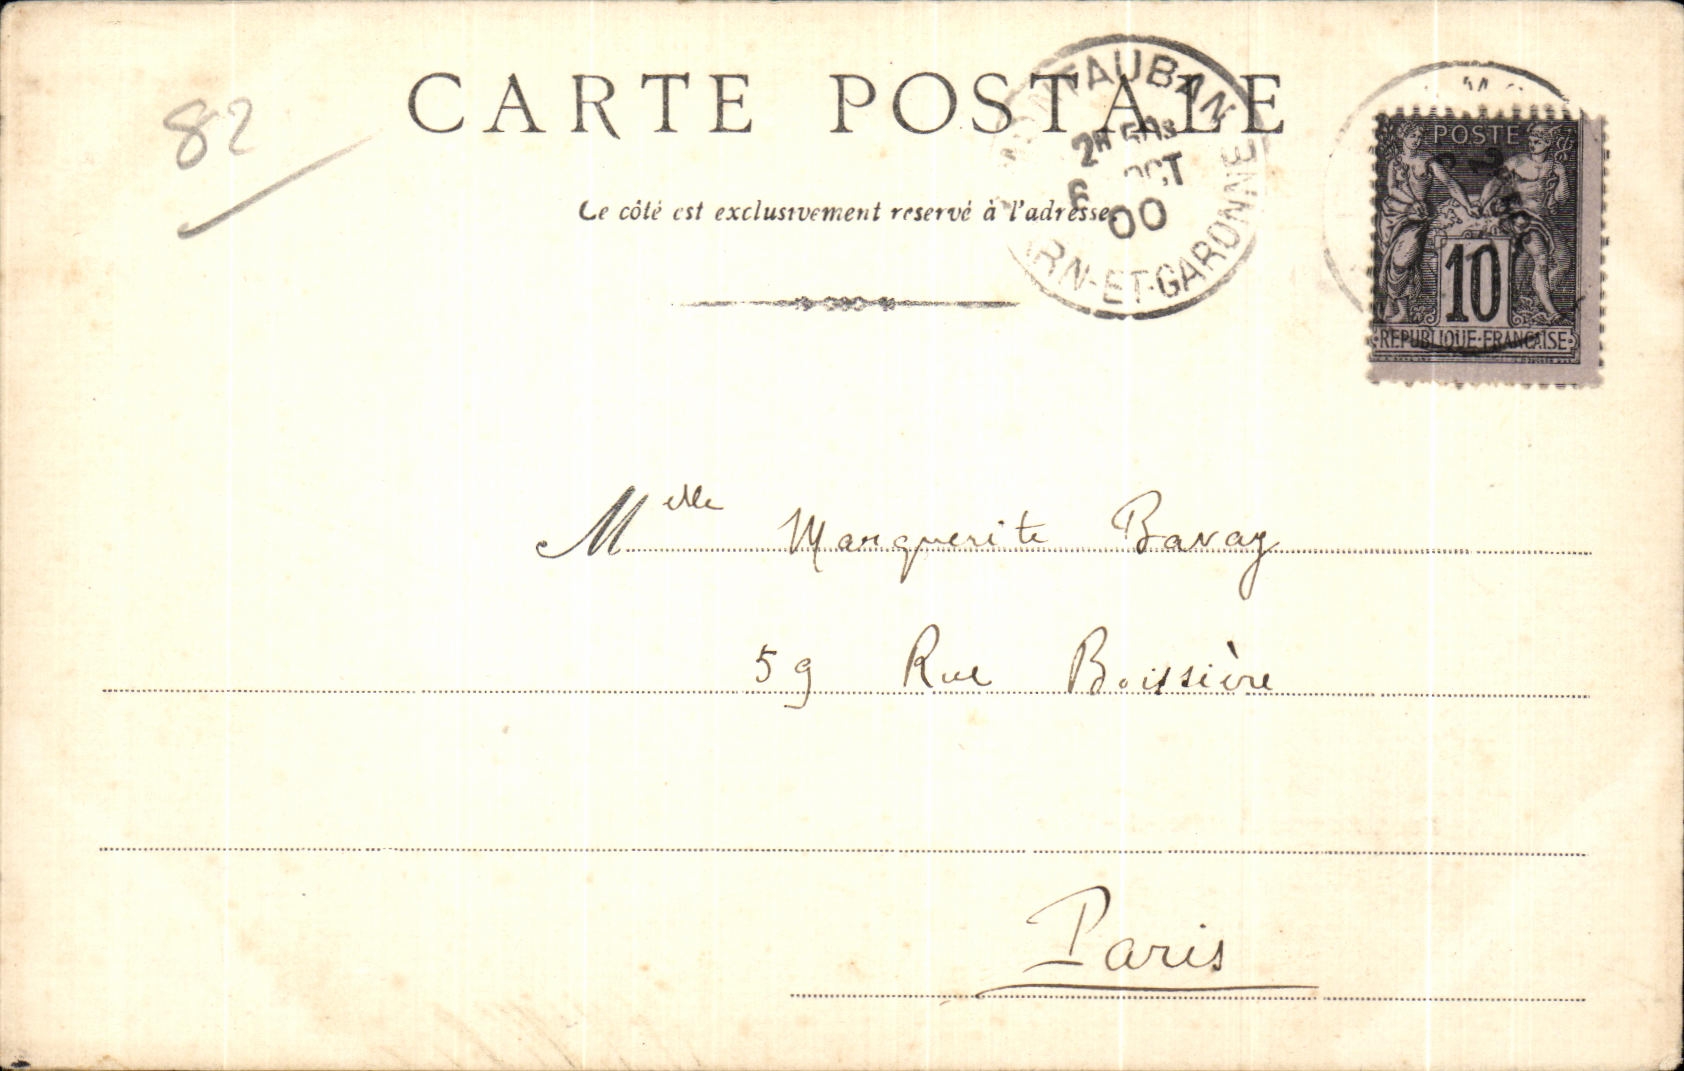 82
CARTE POSTALE
Ce côté est exclusivement reservé à l'adresse.
MONTAUBAN
2E 50s
6 OCT
00
TARN-ET-GARONNE
POSTE
10
REPUBLIQUE-FRANÇAISE
Melle Marguerite Bavay
59 Rue Boissière
Paris